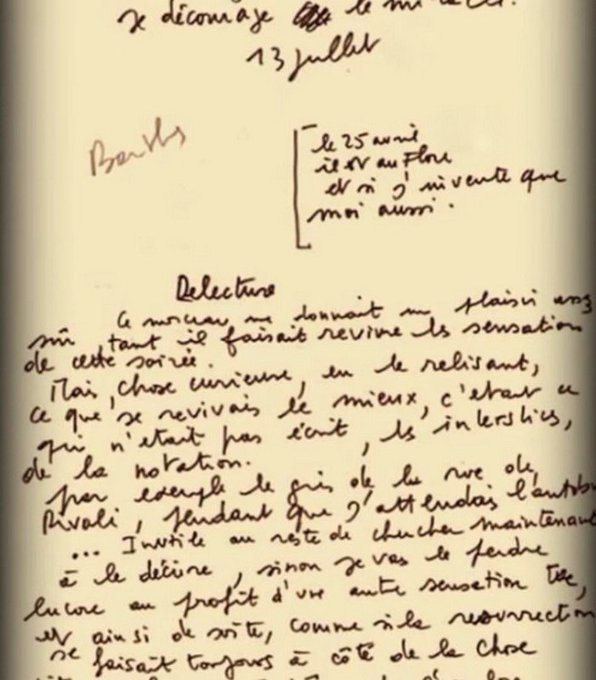 je décourage le
13 juillet
Barthes
le 25 avril
il est au Flore
et si j'invente que
moi aussi.
Relecture
Ce morceau me donnait un plaisir assez
sûr, tant il faisait revivre les sensations
de cette soirée.
Mais, chose curieuse, en le relisant,
ce que je revivais le mieux, c'était ce
qui n'était pas écrit, les interstices,
de la notation.
par exemple le gris de la rue de
Rivoli, pendant que j'attendais l'autobus
... Inutile au reste de chercher maintenant
à le décrire, sinon je vas le perdre
encore au profit d'une autre sensation tue,
et ainsi de suite, comme si la resurrection
se faisait toujours à côté de la chose